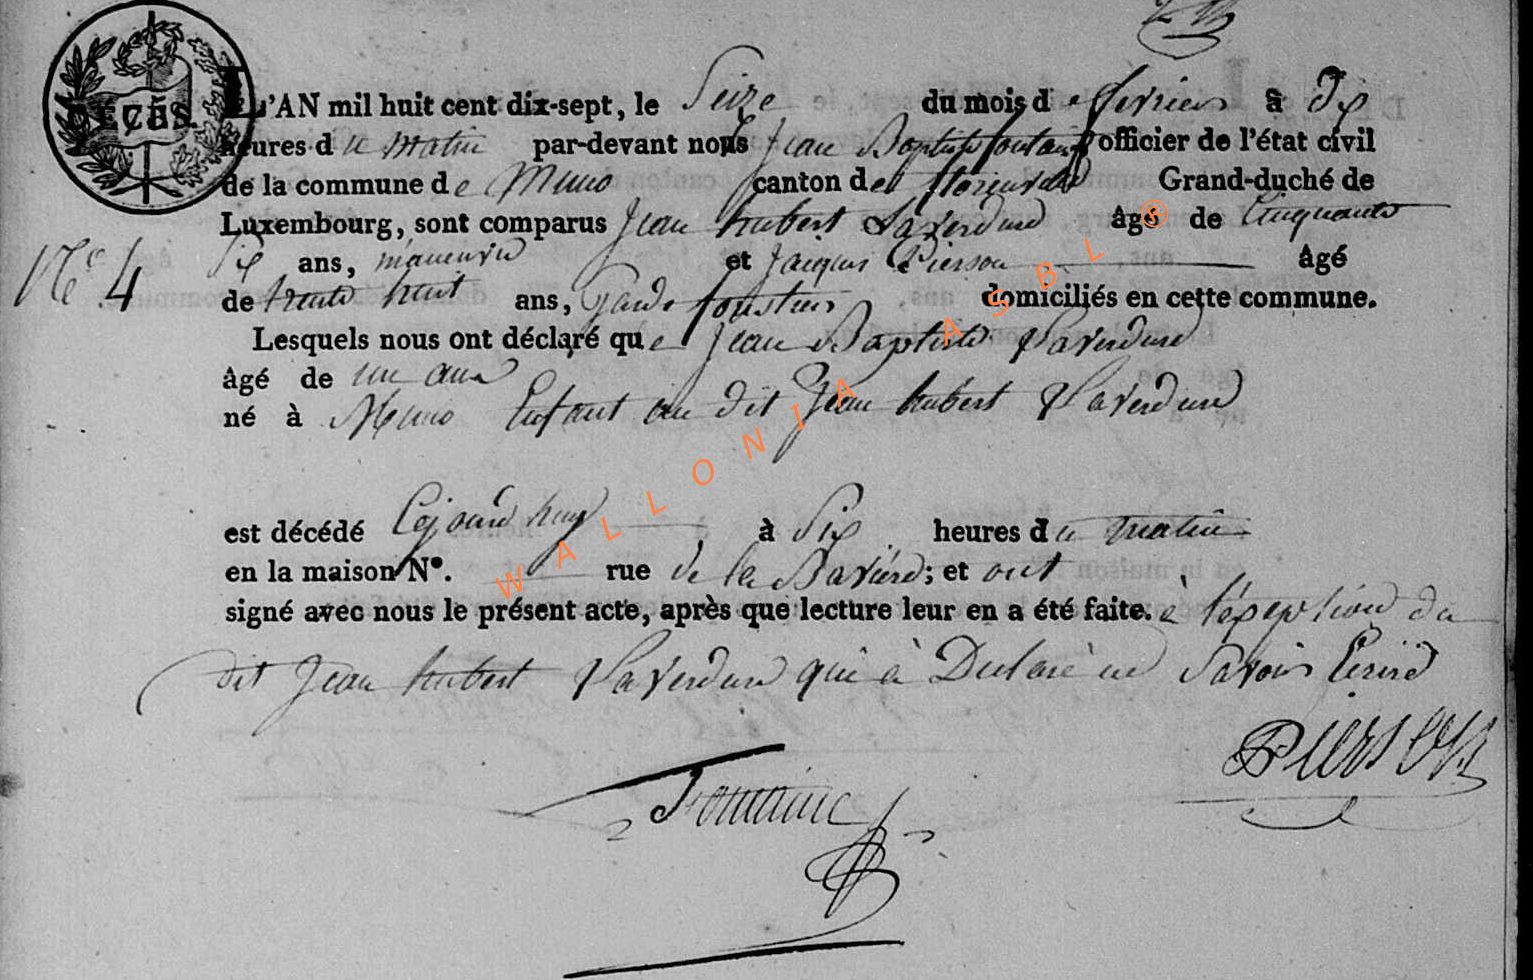 DÉCÈS.
L'AN mil huit cent dix-sept, le Seize du mois de fevrier à Dix
heures du Matin par-devant nous Jean Baptiste fontaine officier de l'état civil
de la commune de Muno canton de florenville Grand-duché de
Luxembourg, sont comparus Jean hubert Laverdure âgé de Cinquante
Six ans, maneuvre et Jacques Pierson âgé
N.º 4
de trente huit ans, Garde forestier domiciliés en cette commune.
Lesquels nous ont déclaré que Jean Baptiste Laverdure
âgé de un an
né à Muno Enfant du dit Jean hubert Laverdure
est décédé Cejourd'huy à Six heures du matin
en la maison Nº. rue de la ; et ont
signé avec nous le présent acte, après que lecture leur en a été faite. à l'exception du
dit Jean hubert Laverdure qui à Declaré ne Savoir Ecrire
Pierson
Fontaine
WALLONIA ASBL ®